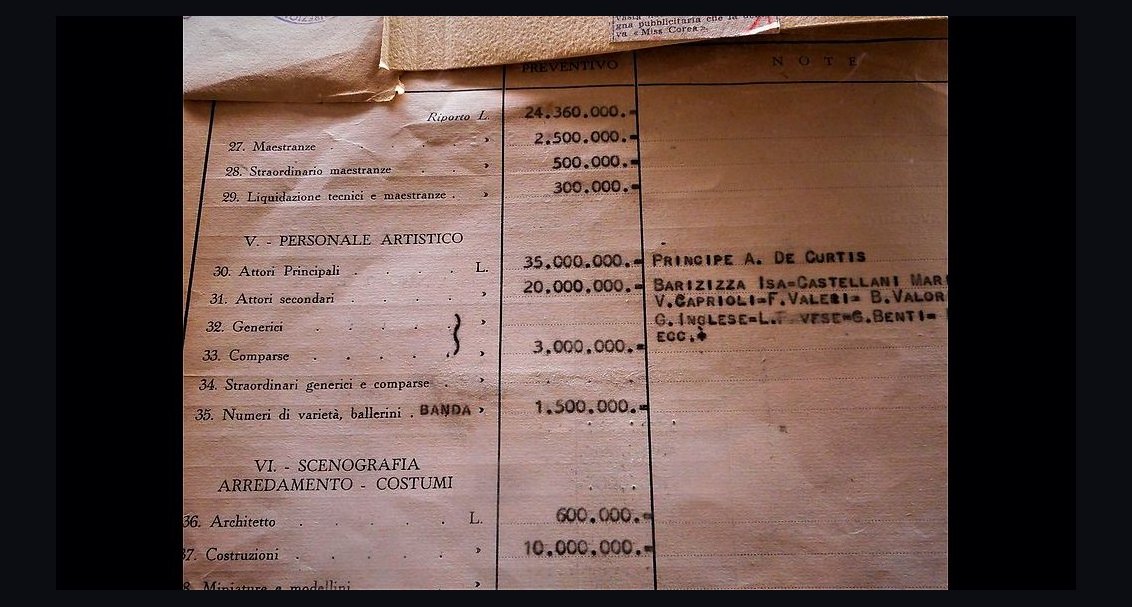 gna pubblicitaria che la
va « Miss Corea».
PREVENTIVO NOTE
Riporto L. 24.360.000.=
27. Maestranze . . . . » 2.500.000.=
28. Straordinario maestranze . . » 500.000.=
29. Liquidazione tecnici e maestranze . » 300.000.=
V. - PERSONALE ARTISTICO
30. Attori Principali . . . . L. 35.000.000.= PRINCIPE A. DE CURTIS
31. Attori secondari . . . . . » 20.000.000.= BARIZIZZA ISA=CASTELLANI MAR
V.CAPRIOLI=F.VALERI= B.VALOR
32. Generici . . . . . » G.INGLESE=L. =G.BENTI=
ECC.
33. Comparse . . . . . » 3.000.000.=
34. Straordinari generici e comparse . »
35. Numeri di varietà, ballerini . BANDA » 1.500.000.=
VI. - SCENOGRAFIA
ARREDAMENTO - COSTUMI
36. Architetto . . . . . L. 600.000.=
37. Costruzioni . . . . . » 10.000.000.=
8. Miniature e modellini . . . »